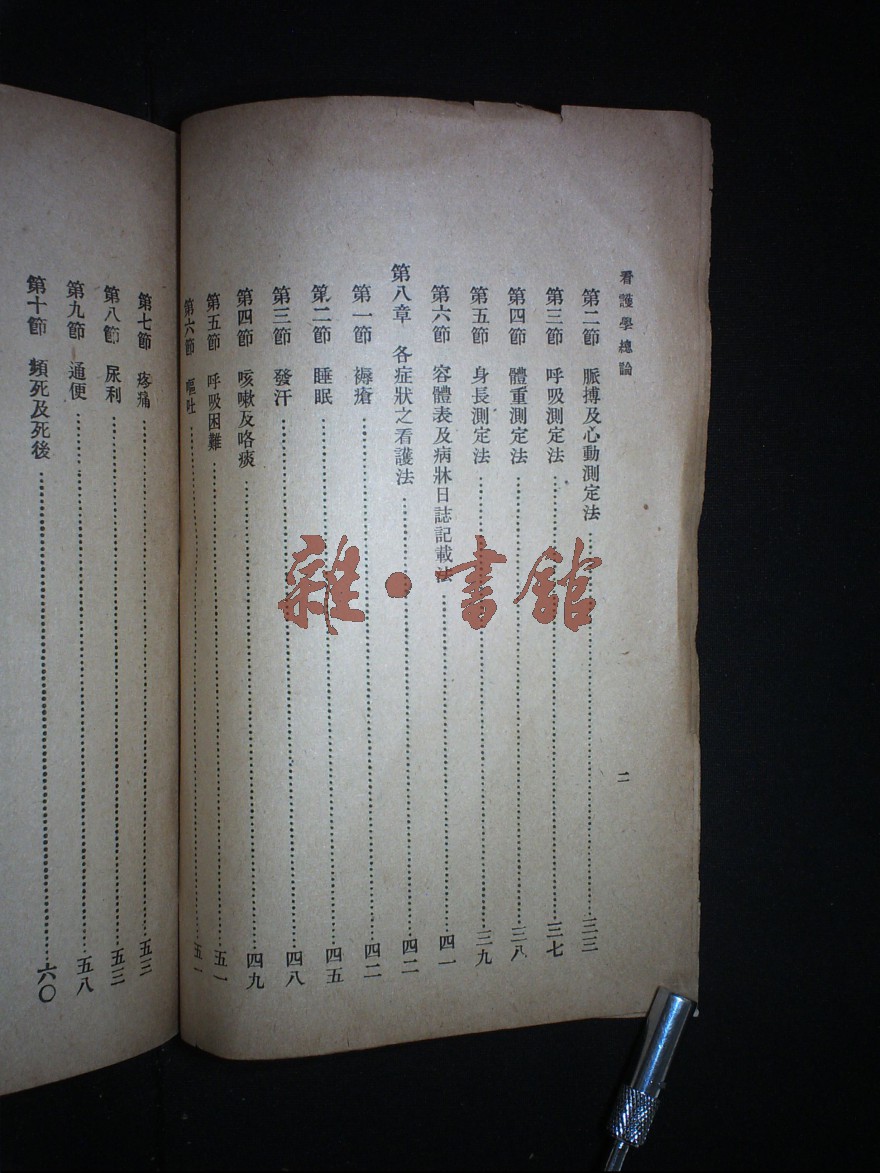 看護學總論
二
第二節 脈搏及心動測定法 三三
第三節 呼吸測定法 三七
第四節 體重測定法 三八
第五節 身長測定法 三九
第六節 容體表及病牀日誌記載法 四一
第八章 各症狀之看護法 四二
第一節 褥瘡 四二
第二節 睡眠 四五
第三節 發汗 四八
第四節 咳嗽及咯痰 四九
第五節 呼吸困難 五一
第六節 嘔吐 五一
第七節 疼痛 五三
第八節 尿利 五三
第九節 通便 五八
第十節 頻死及死後 六〇
雜·書館